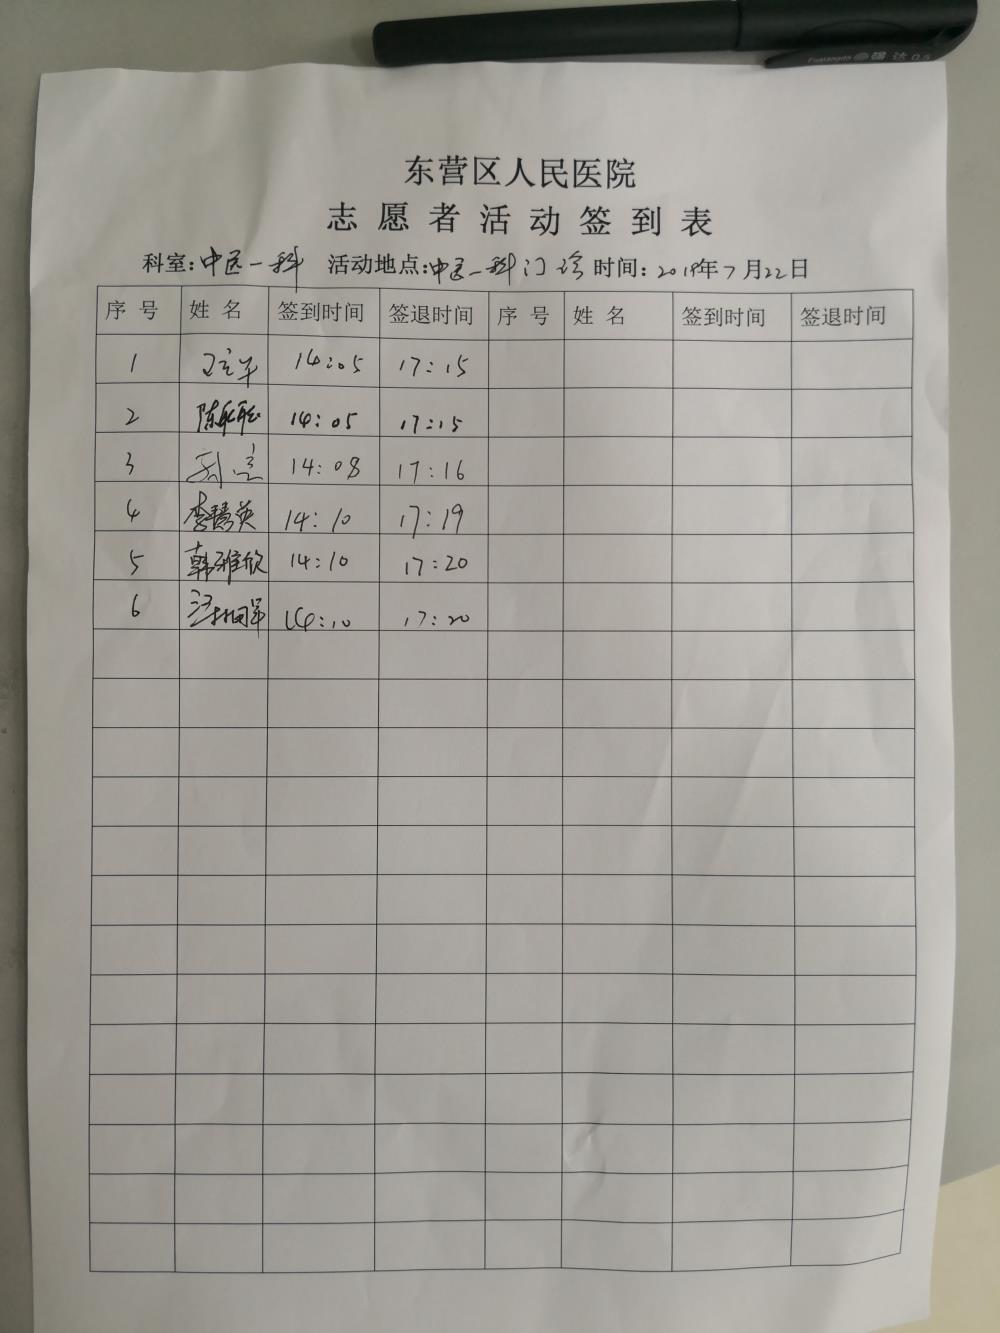 强达 0.5
东营区人民医院
志愿者活动签到表
科室:中医一科 活动地点:中医一科门诊 时间: 2019年7月22日
序号 姓名 签到时间 签退时间 序号 姓名 签到时间 签退时间
1 14:05 17:15
2 陈 14:05 17:15
3 14:08 17:16
4 李慧英 14:10 17:19
5 韩雅欣 14:10 17:20
6 14:10 17:20